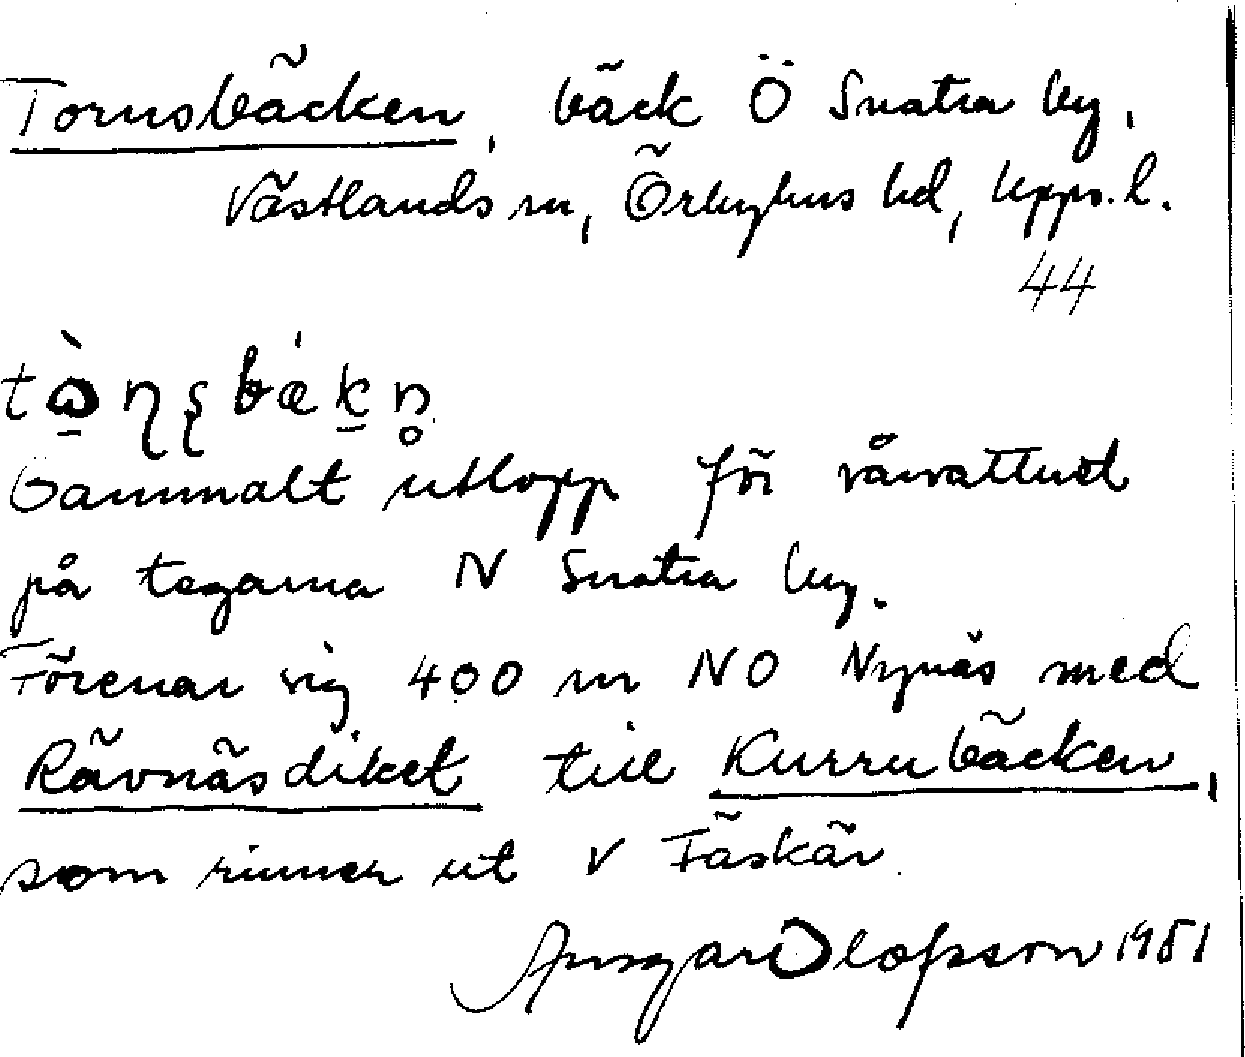 Tornsbäcken, bäck Ö Snatra by,
Västlands sn, Örbyhus hd, Upps. l.
44
tɷ̠̀ɳʂbǽk̠n̥
Gammalt utlopp för vårvattnet
på tegarna N Snatra by.
Förenar sig 400 m NO Nynäs med
Rävnäsdiket till Kurrubäcken,
som rinner ut V Fäskär.
Ansgar Olofsson 1951